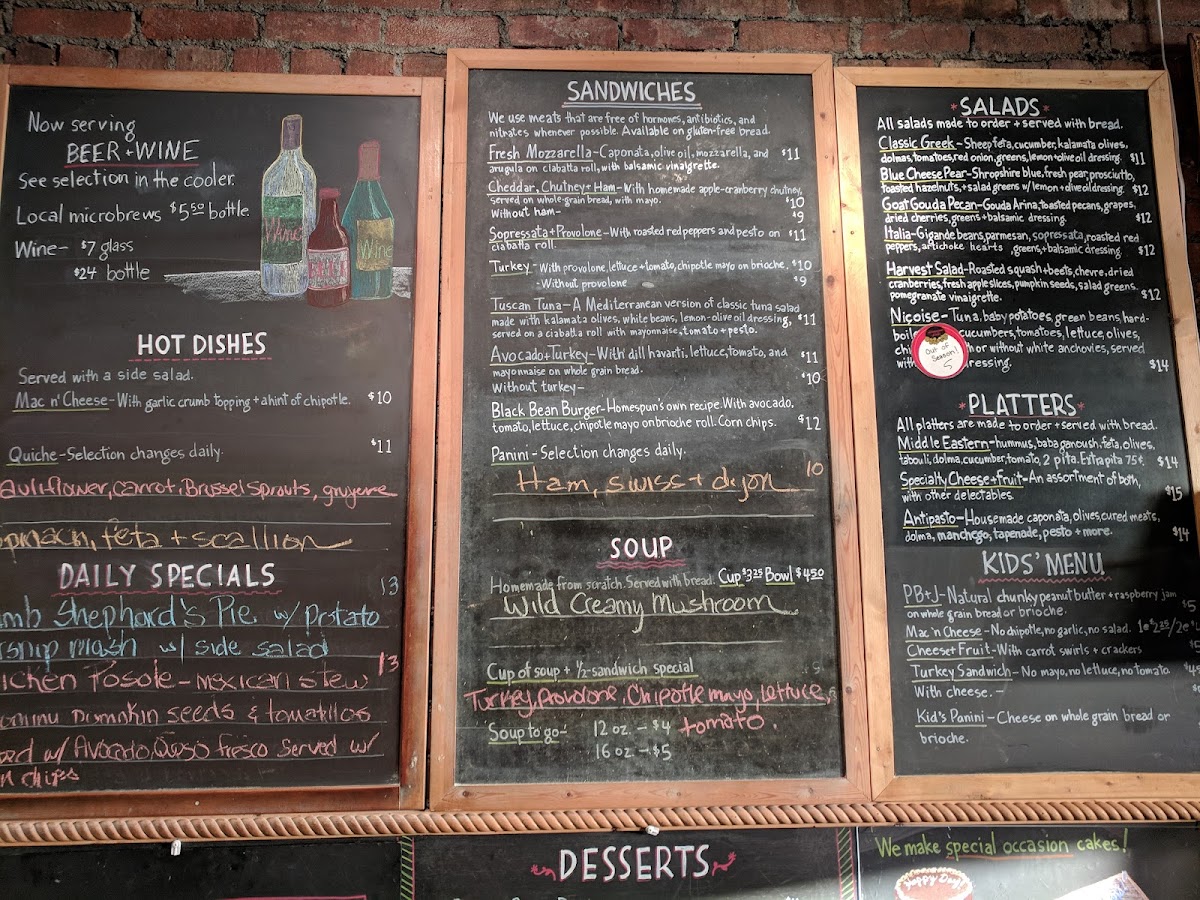 Now serving
BEER + WINE
See selection in the cooler.
Local microbrews $5.50 bottle
Wine - $7 glass
$24 bottle
Wine
BEER
Wine
HOT DISHES
Served with a side salad.
Mac n' Cheese - With garlic crumb topping + a hint of chipotle. $10
Quiche - Selection changes daily. $11
auliflower, carrot, Brussel sprouts, gruyere
spinach, feta + scallion
DAILY SPECIALS 13
mb Shephard's Pie w/ Potato
rsnip mash w/ side salad
icken Posole - Mexican stew 13
Pumpkin seeds & tomatillos
ed w/ Avocado, Queso fresco served w/
n chips
SANDWICHES
We use meats that are free of hormones, antibiotics, and
nitrates whenever possible. Available on gluten-free bread.
Fresh Mozzarella - Caponata, olive oil, mozzarella, and $11
arugula on ciabatta roll, with balsamic vinaigrette.
Cheddar, Chutney + Ham - With homemade apple-cranberry chutney,
served on whole-grain bread, with mayo. $10
Without ham - $9
Sopressata + Provolone - With roasted red peppers and pesto on $11
ciabatta roll.
Turkey - With provolone, lettuce + tomato, chipotle mayo on brioche. $10
- Without provolone $9
Tuscan Tuna - A Mediterranean version of classic tuna salad
made with kalamata olives, white beans, lemon-olive oil dressing, $11
served on a ciabatta roll with mayonnaise, tomato + pesto.
Avocado + Turkey - With dill havarti, lettuce, tomato, and $11
mayonnaise on whole grain bread.
Without turkey - $10
Black Bean Burger - Homespun's own recipe. With avocado,
tomato, lettuce, chipotle mayo on brioche roll. Corn chips. $12
Panini - Selection changes daily.
Ham, swiss + dijon 10
SOUP
Homemade from scratch. Served with bread. Cup $3.25 Bowl $4.50
Wild Creamy Mushroom
Cup of soup + 1/2-sandwich special
Turkey, Provolone, Chipotle mayo, lettuce,
tomato.
Soup to go - 12 oz - $4
16 oz - $5
*SALADS*
All salads made to order + served with bread.
Classic Greek - Sheep feta, cucumber, kalamata olives,
dolmas, tomatoes, red onion, greens, lemon + olive oil dressing. $11
Blue Cheese Pear - Shropshire blue, fresh pear, prosciutto,
toasted hazelnuts, + salad greens w/ lemon + olive oil dressing. $12
Goat Gouda Pecan - Gouda Arina, toasted pecans, grapes,
dried cherries, greens + balsamic dressing. $12
Italia - Gigande beans, parmesan, sopressata, roasted red
peppers, artichoke hearts, greens, + balsamic dressing. $12
Harvest Salad - Roasted squash + beets, chevre, dried
cranberries, fresh apple slices, pumpkin seeds, salad greens,
pomegranate vinaigrette. $12
Niçoise - Tuna, baby potatoes, green beans, hard-
boil cucumbers, tomatoes, lettuce, olives,
chi h or without white anchovies, served
with dressing. $14
Out of
Season!
*PLATTERS*
All platters are made to order + served with bread.
Middle Eastern - hummus, baba ganoush, feta, olives,
tabouli, dolma, cucumber, tomato, 2 pita. Extra pita 75¢. $14
Specialty Cheese + fruit - An assortment of both,
with other delectables. $15
Antipasto - Housemade caponata, olives, cured meats,
dolma, manchego, tapenade, pesto + more. $14
KIDS' MENU
PB+J - Natural chunky peanut butter + raspberry jam
on whole grain bread or brioche. $5
Mac 'n Cheese - No chipotle, no garlic, no salad.
Cheese + Fruit - With carrot swirls + crackers
Turkey Sandwich - No mayo, no lettuce, no tomato
With cheese. -
Kid's Panini - Cheese on whole grain bread or
brioche.
DESSERTS
We make special occasion cakes!
Happy Day!